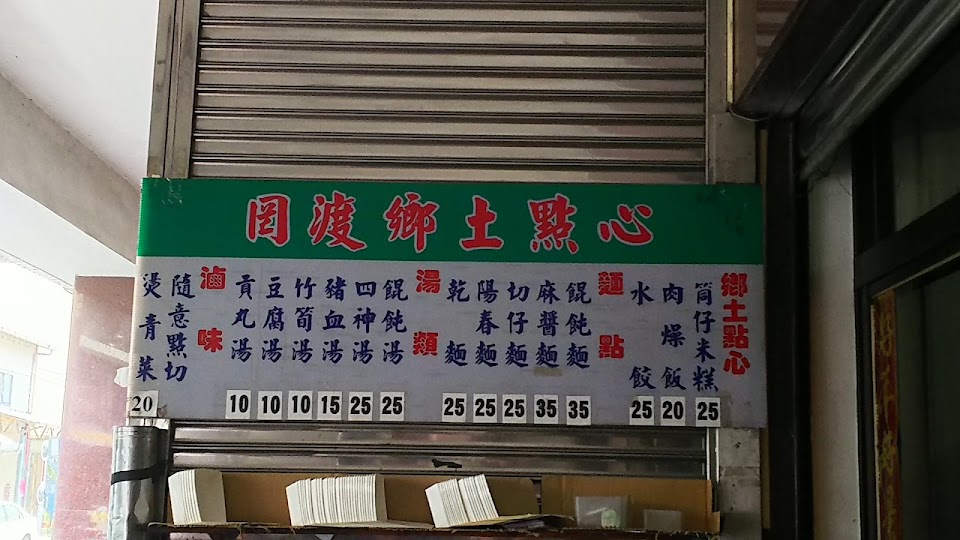 罔渡鄉土點心
鄉土點心
筒仔米糕 25
肉燥飯 20
水餃 25
麵點
餛飩麵 35
麻醬麵 35
切仔麵 25
陽春麵 25
乾麵 25
湯類
餛飩湯 25
四神湯 25
豬血湯 15
竹筍湯 10
豆腐湯 10
貢丸湯 10
滷味
隨意點切
燙青菜 20